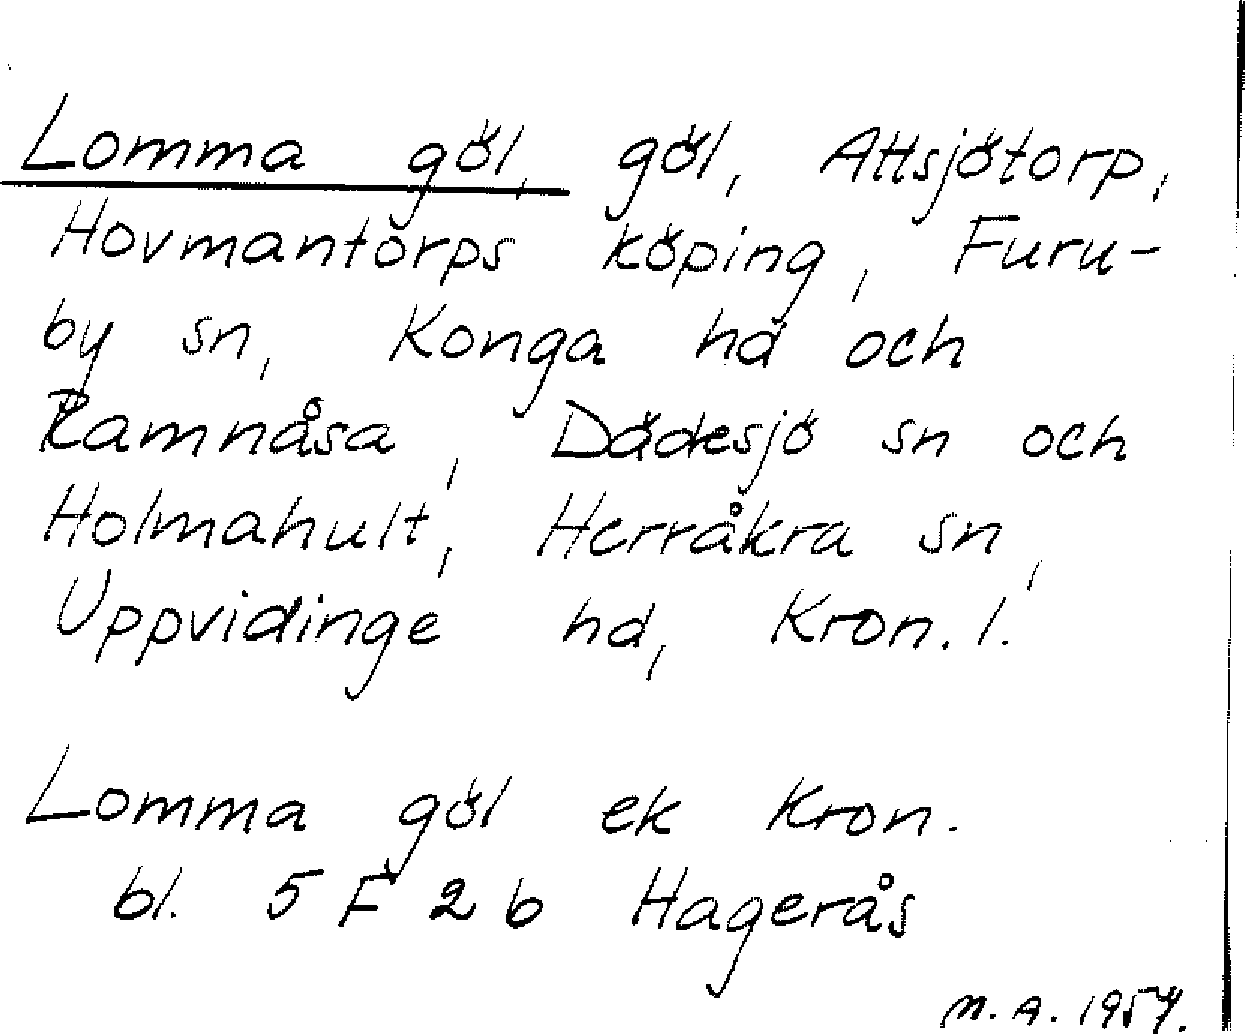 Lomma göl, göl, Attsjötorp,
Hovmantorps köping, Furu-
by sn, Konga hd och
Ramnåsa, Dädesjö sn och
Holmahult, Herråkra sn,
Uppvidinge hd, Kron. l.
Lomma göl ek Kron.
bl. 5 F 2 b Hagerås
M. A. 1957.